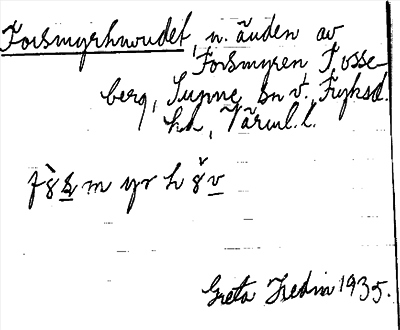 Forsmyrhuvudet, n. änden av
Forsmyren Tosse-
berg, Sunne sn v. Fryksd.
hd, Värml. l.
f8̀s̱ m yr h 8̌v̱
Greta Hedin 1935.